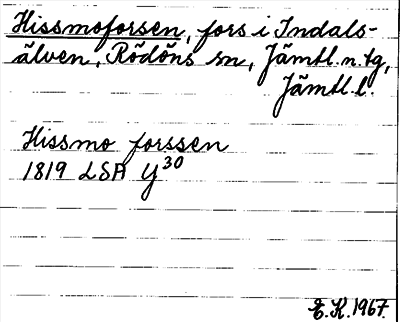 Hissmoforsen, fors i Indals-
älven, Rödöns sn, Jämtl. n. tg,
Jämtl. l.
Hissmo forssen
1819 LSA Y30
E.K. 1967.